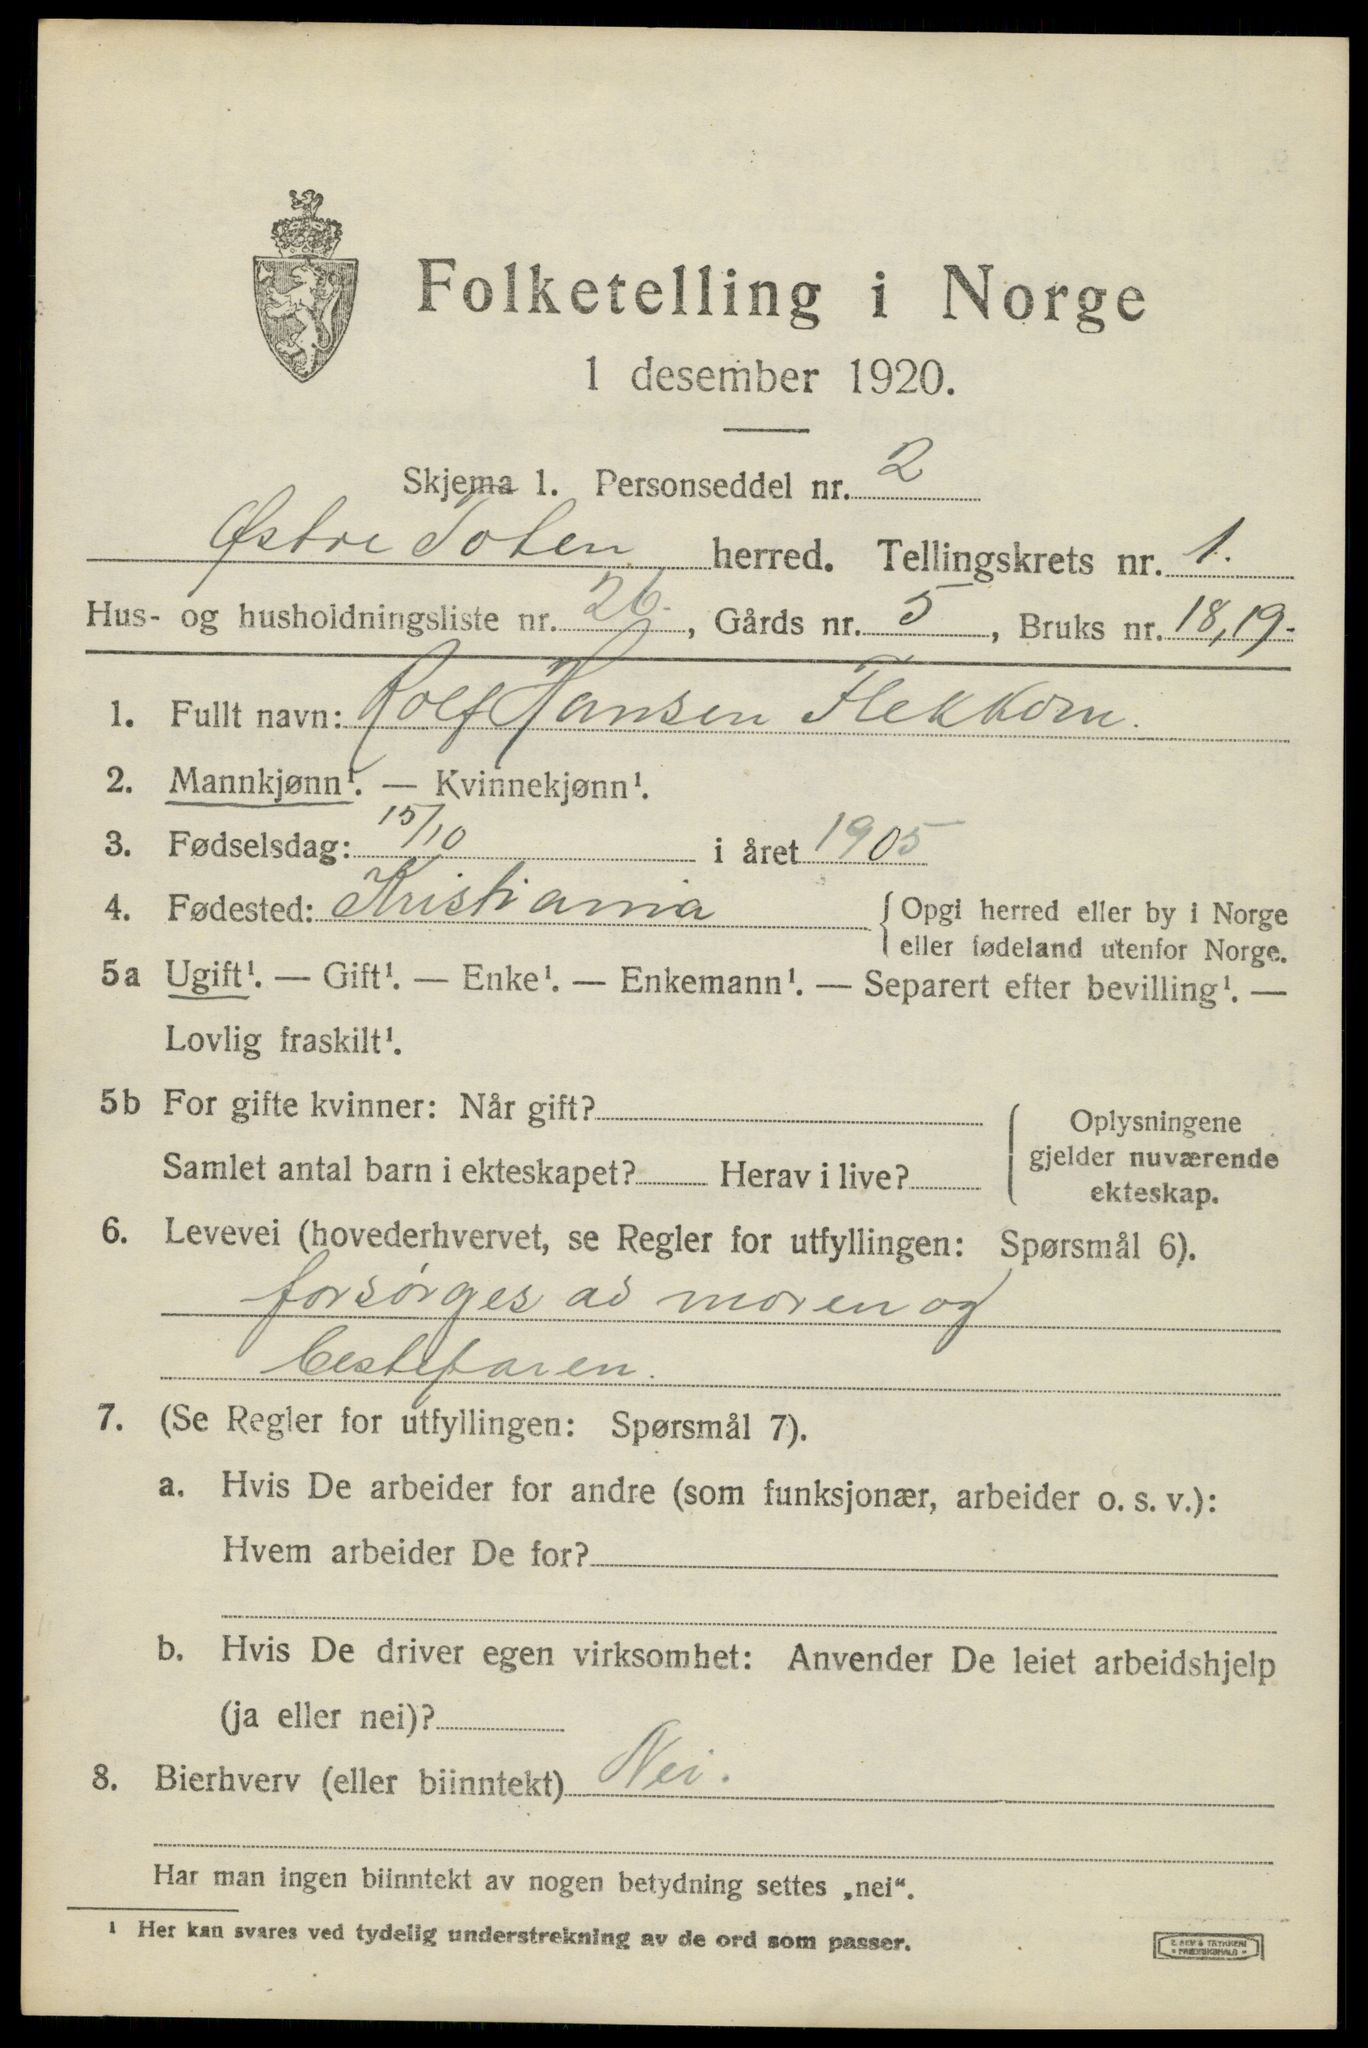 Folketelling i Norge
1 desember 1920.
Skjema 1. Personseddel nr. 2
Østre Toten herred. Tellingskrets nr. 1.
Hus- og husholdningsliste nr. 26., Gårds nr. 5, Bruks nr. 18, 19.
1. Fullt navn: Rolf Hansen Flekkom.
2. Mannkjønn¹. — Kvinnekjønn¹.
3. Fødselsdag: 15/10 i året 1905
4. Fødested: Kristiania { Opgi herred eller by i Norge
eller fødeland utenfor Norge.
5a Ugift¹. — Gift¹. — Enke¹. — Enkemann¹. — Separert efter bevilling¹. —
Lovlig fraskilt¹.
5b For gifte kvinner: Når gift?
Samlet antal barn i ekteskapet? Herav i live?
Oplysningene
gjelder nuværende
ekteskap.
6. Levevei (hovederhvervet, se Regler for utfyllingen: Spørsmål 6).
forsørges av moren og
bestefaren.
7. (Se Regler for utfyllingen: Spørsmål 7).
a. Hvis De arbeider for andre (som funksjonær, arbeider o. s. v.):
Hvem arbeider De for?
b. Hvis De driver egen virksomhet: Anvender De leiet arbeidshjelp
(ja eller nei)?
8. Bierhverv (eller biinntekt) Nei.
Har man ingen biinntekt av nogen betydning settes „nei“.
¹ Her kan svares ved tydelig understrekning av de ord som passer.